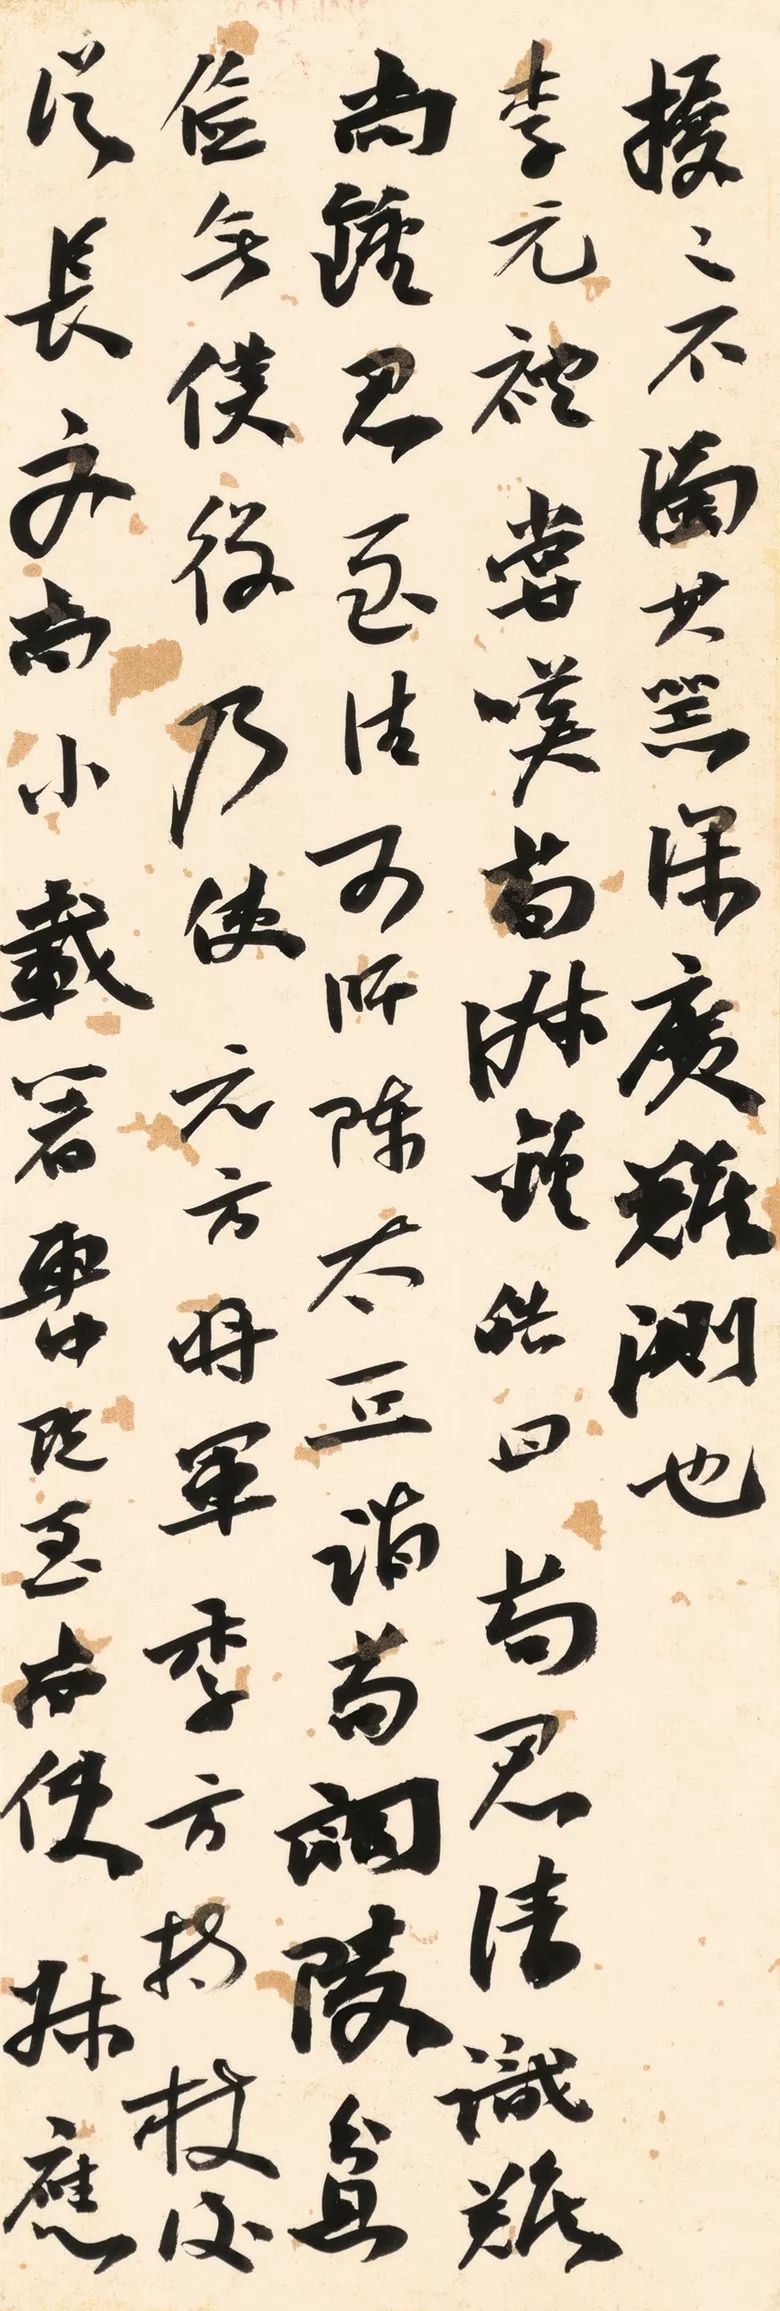 擾之不濁其器深廣難測也
李元禮嘗嘆荀淑鍾皓曰荀君清識難
尚鍾君至德可師陳太丘詣荀朗陵貧
儉無僕役乃使元方將車季方持杖後
從長文尚小載著車中既至荀使叔應